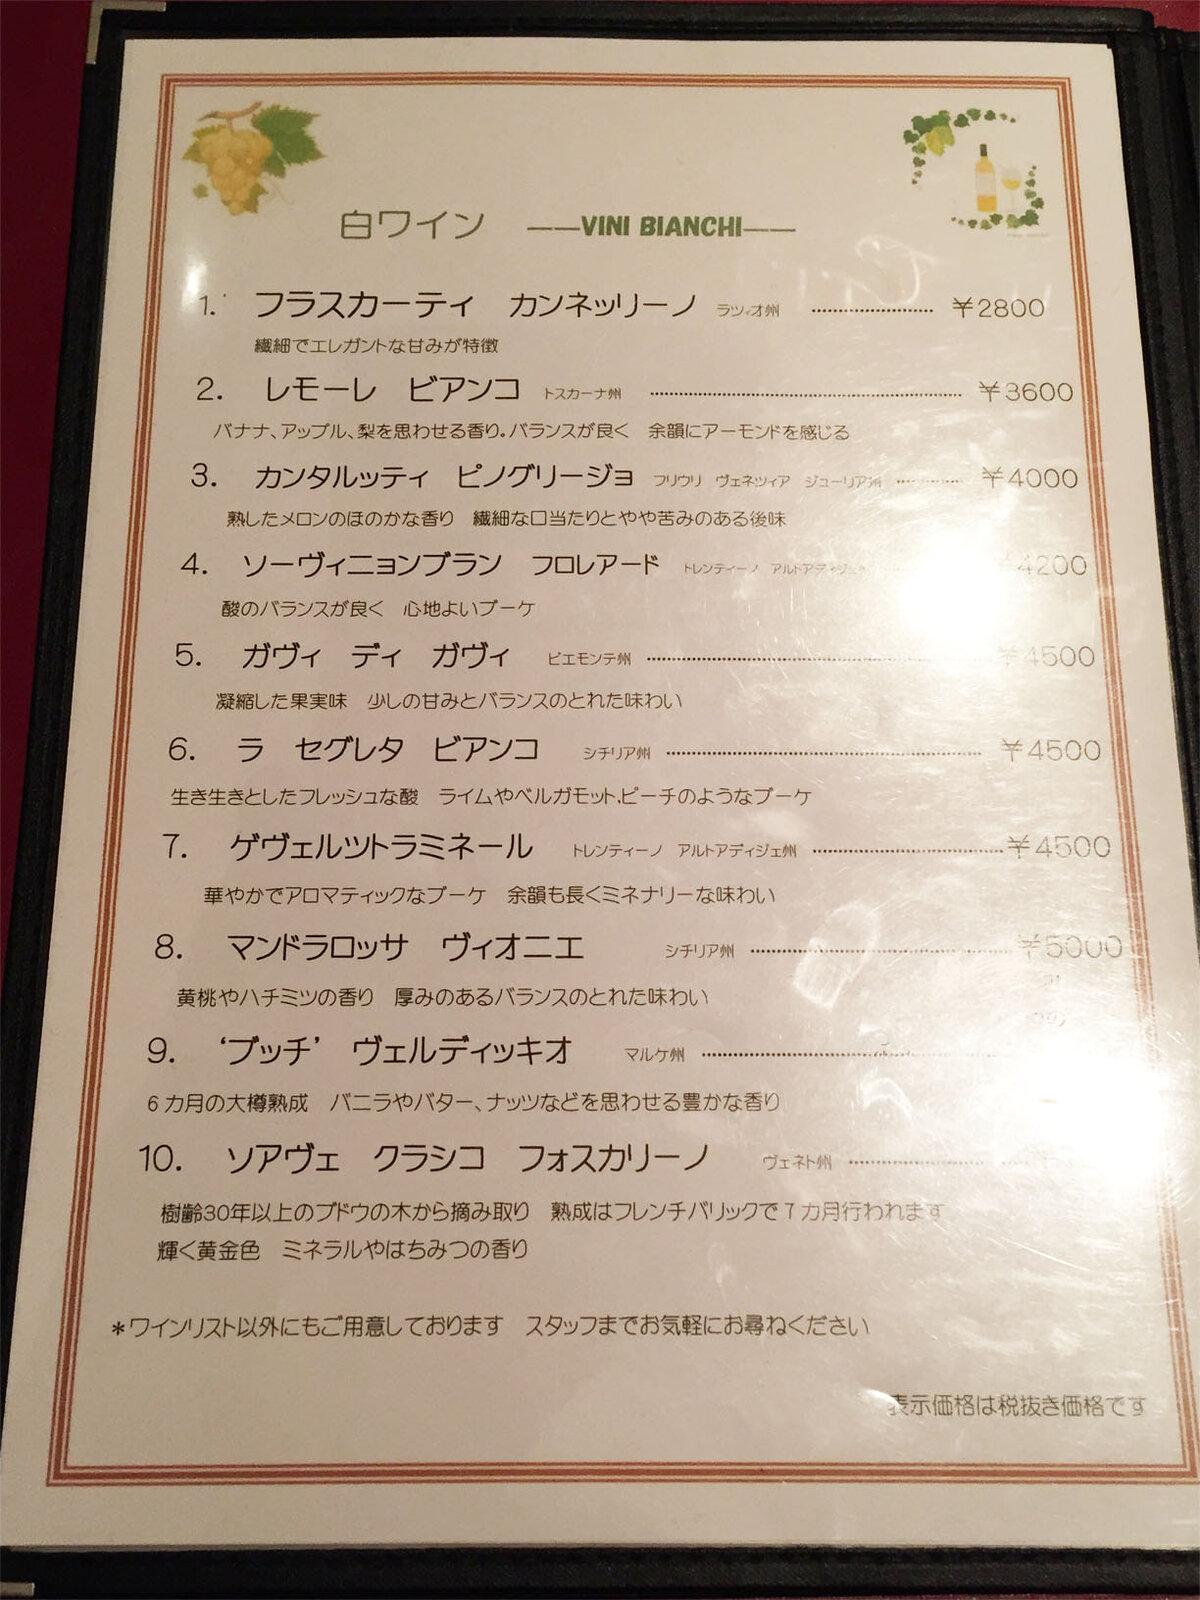 白ワイン ——VINI BIANCHI——
1. フラスカーティ カンネッリーノ ラツィオ州 ¥2800
繊細でエレガントな甘みが特徴
2. レモーレ ビアンコ トスカーナ州 ¥3600
バナナ、アップル、梨を思わせる香り。バランスが良く 余韻にアーモンドを感じる
3. カンタルッティ ピノグリージョ フリウリ ヴェネツィア ジューリア州 ¥4000
熟したメロンのほのかな香り 繊細な口当たりとやや苦みのある後味
4. ソーヴィニョンブラン フロレアード トレンティーノ アルトアディジェ ¥4200
酸のバランスが良く 心地よいブーケ
5. ガヴィ ディ ガヴィ ピエモンテ州 ¥4500
凝縮した果実味 少しの甘みとバランスのとれた味わい
6. ラ セグレタ ビアンコ シチリア州 ¥4500
生き生きとしたフレッシュな酸 ライムやベルガモット、ピーチのようなブーケ
7. ゲヴェルツトラミネール トレンティーノ アルトアディジェ州 ¥4500
華やかでアロマティックなブーケ 余韻も長くミネナリーな味わい
8. マンドラロッサ ヴィオニエ シチリア州 ¥5000
黄桃やハチミツの香り 厚みのあるバランスのとれた味わい
9. ‘ブッチ’ ヴェルディッキオ マルケ州
6カ月の大樽熟成 バニラやバター、ナッツなどを思わせる豊かな香り
10. ソアヴェ クラシコ フォスカリーノ ヴェネト州
樹齢30年以上のブドウの木から摘み取り 熟成はフレンチバリックで7カ月行われます
輝く黄金色 ミネラルやはちみつの香り
*ワインリスト以外にもご用意しております スタッフまでお気軽にお尋ねください
表示価格は税抜き価格です